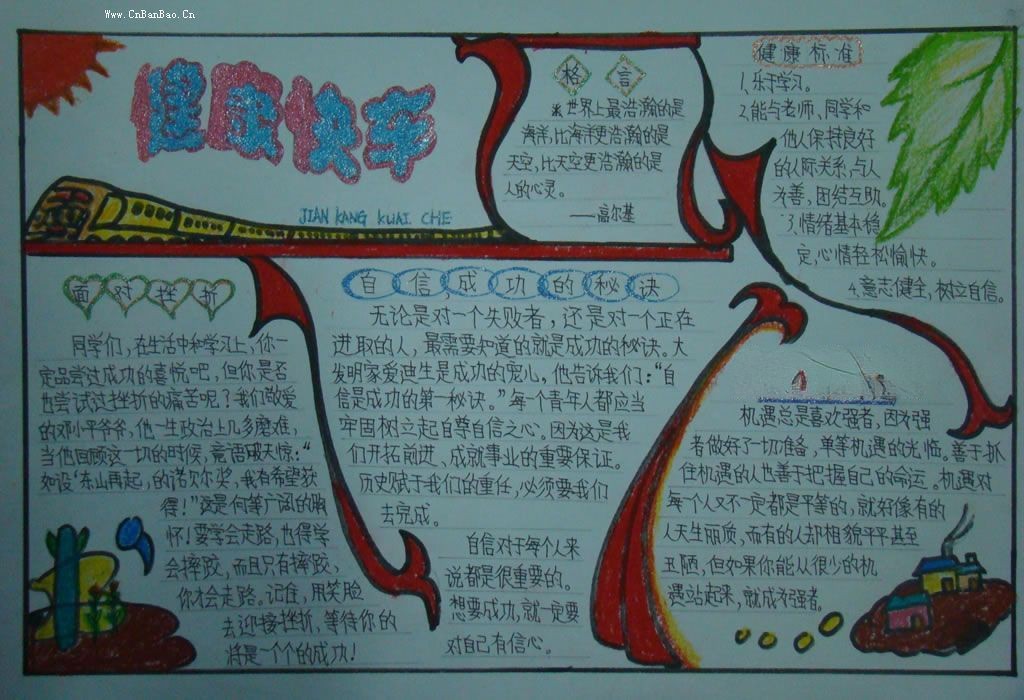 Www.CnBanBao.Cn
健康快车
JIAN KANG KUAI CHE
格言
※世界上最浩瀚的是
海洋,比海洋更浩瀚的是
天空,比天空更浩瀚的是
人的心灵。
——高尔基
健康标准
1.乐于学习。
2.能与老师、同学和
他人保持良好
的人际关系,与人
为善,团结互助。
3.情绪基本稳
定,心情轻松愉快。
4.意志健全,树立自信。
面对挫折
同学们,在生活中和学习上,你一
定品尝过成功的喜悦吧,但你是否
也尝试过挫折的痛苦呢?我们敬爱
的邓小平爷爷,他一生政治上几多磨难,
当他回顾这一切的时候,竟语破天惊:“
如设‘东山再起,的诺贝尔奖,我有希望获
得!”这是何等广阔的胸
怀!要学会走路,也得学
会摔跤,而且只有摔跤,
你才会走路。记住,用笑脸
去迎接挫折,等待你的
将是一个个的成功!
自信,成功的秘诀
无论是对一个失败者,还是对一个正在
进取的人,最需要知道的就是成功的秘诀。大
发明家爱迪生是成功的宠儿,他告诉我们:“自
信是成功的第一秘诀。”每个青年人都应当
牢固树立起自尊自信之心。因为这是我
们开拓前进、成就事业的重要保证。
历史赋于我们的重任,必须要我们
去完成。
自信对于每个人来
说都是很重要的。
想要成功,就一定要
对自己有信心。
机遇总是喜欢强者,因为强
者做好了一切准备,单等机遇的光临。善于抓
住机遇的人也善于把握自己的命运。机遇对
每个人又不一定都是平等的,就好像有的
人天生丽质,而有的人却相貌平平甚至
丑陋,但如果你能从很少的机
遇站起来,就成为强者。